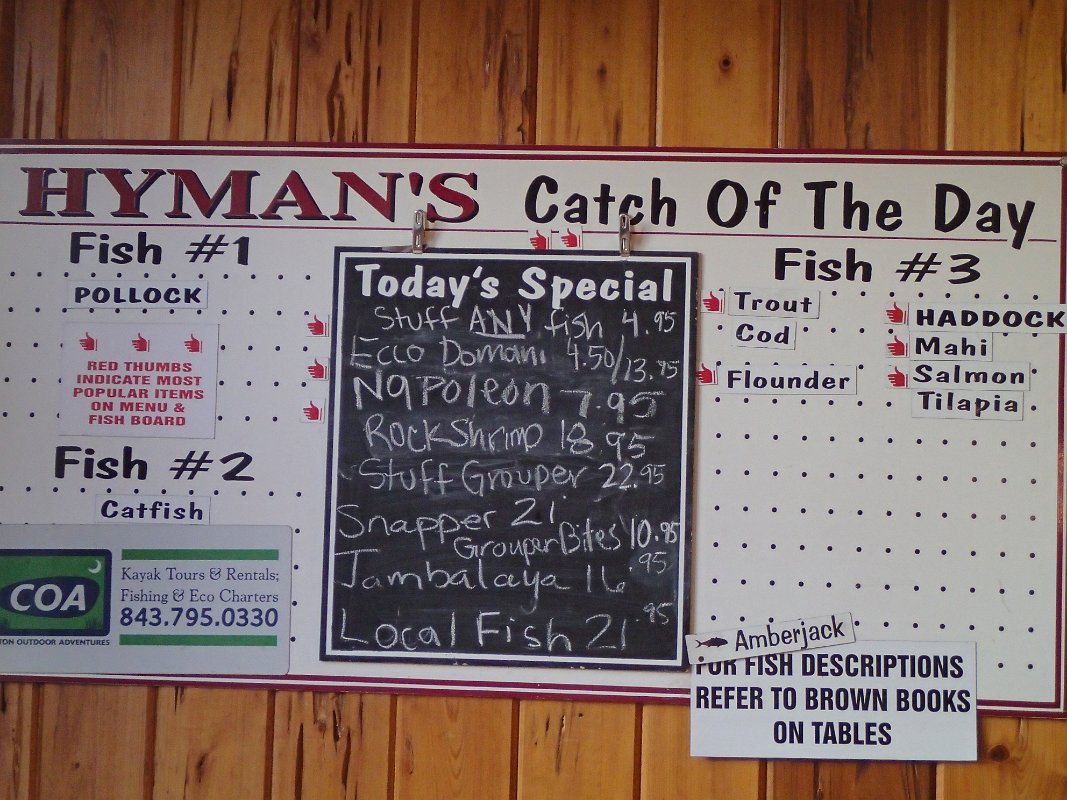 HYMAN'S Catch Of The Day
Fish #1
POLLOCK
RED THUMBS
INDICATE MOST
POPULAR ITEMS
ON MENU &
FISH BOARD
Fish #2
Catfish
COA
TON OUTDOOR ADVENTURES
Kayak Tours & Rentals;
Fishing & Eco Charters
843.795.0330
Today's Special
Stuff ANY fish 4.95
Ecco Domani 4.50/13.95
Napoleon 7.95
Rock Shrimp 18.95
Stuff Grouper 22.95
Snapper 21
Grouper Bites 10.95
Jambalaya 16.95
Local Fish 21.95
Fish #3
Trout
Cod
Flounder
HADDOCK
Mahi
Salmon
Tilapia
Amberjack
FOR FISH DESCRIPTIONS
REFER TO BROWN BOOKS
ON TABLES